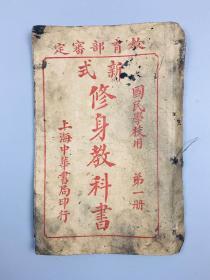 教育部審定
國民學校用 第一册
新式
修身教科書
上海中華書局印行